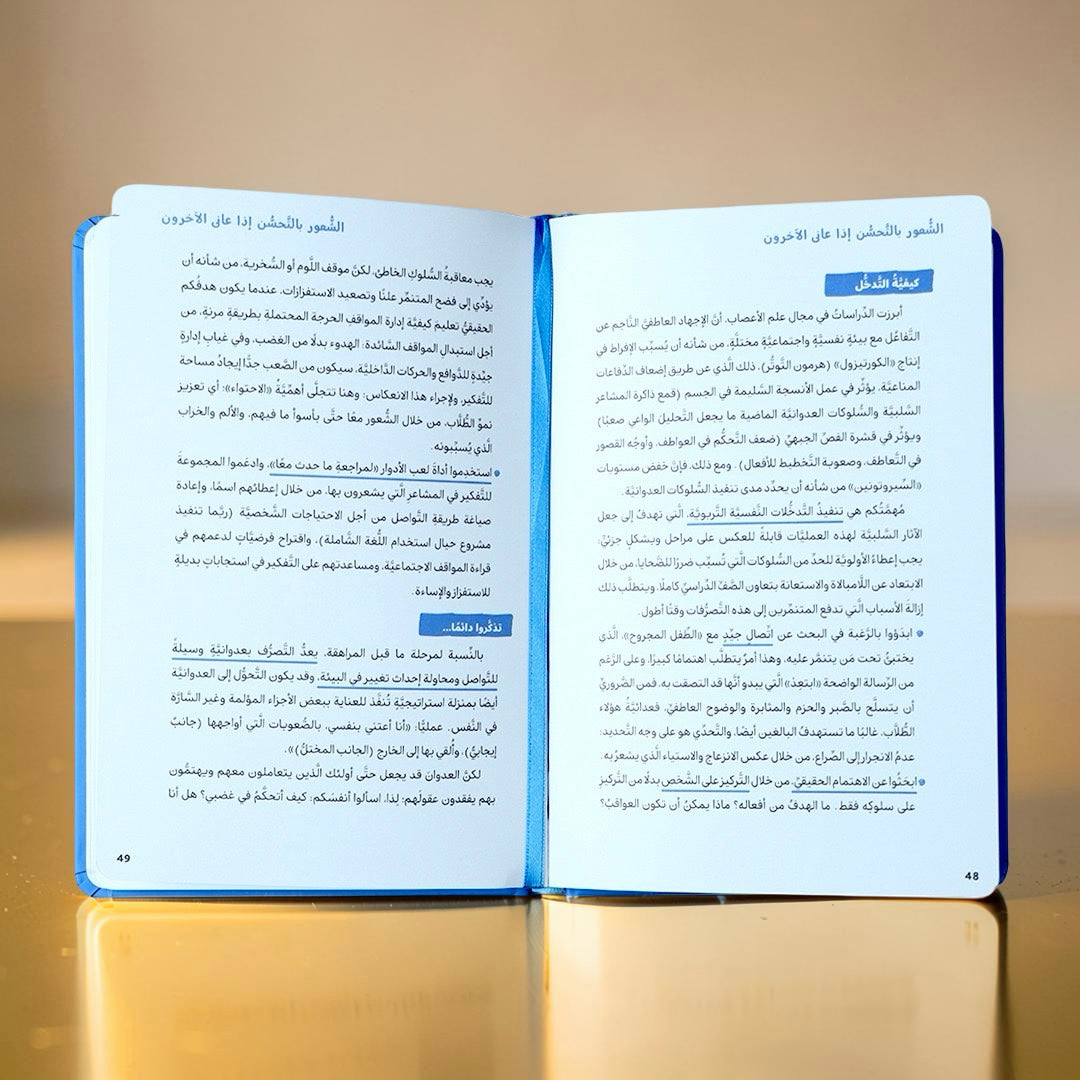 الشُّعور بالتَّحسُّن إذا عانى الآخرون
كيفيَّةُ التَّدخُّل
أبرزت الدِّراساتُ في مجال علم الأعصاب، أنَّ الإجهاد العاطفيَّ النَّاجم عن
التَّفاعُل مع بيئةٍ نفسيَّةٍ واجتماعيَّةٍ مختلَّةٍ، من شأنه أن يُسبِّب الإفراط في
إنتاج «الكورتيزول» (هرمون التَّوتُّر)، ذلك الَّذي عن طريق إضعاف الدِّفاعات
المناعيَّة، يؤثِّر في عمل الأنسجة السَّليمة في الجسم (قمع ذاكرة المشاعر
السَّلبيَّة والسُّلوكات العدوانيَّة الماضية ما يجعل التَّحليلَ الواعي صعبًا)
ويؤثِّر في قشرة الفصِّ الجبهيِّ (ضعف التَّحكُّم في العواطف، وأوجُه القصور
في التَّعاطف، وصعوبة التَّخطيط للأفعال) . ومع ذلك، فإنَّ خفض مستويات
«السِّيروتونين» من شأنه أن يحدِّد مدى تنفيذ السُّلوكات العدوانيَّة.
مُهمَّتُكم هي تنفيذُ التَّدخُّلات النَّفسيَّة التَّربويَّة، الَّتي تهدفُ إلى جعل
الآثار السَّلبيَّة لهذه العمليَّات قابلةً للعكس على مراحل وبشكلٍ جزئيٍّ:
يجب إعطاءُ الأولويَّة للحدِّ من السُّلوكات الَّتي تُسبِّب ضررًا للضَّحايا، من خلال
الابتعاد عن اللَّامبالاة والاستعانة بتعاون الصَّفِّ الدِّراسيِّ كاملًا، ويتطلَّب ذلك
إزالةَ الأسباب الَّتي تدفع المتنمِّرين إلى هذه التَّصرُّفات وقتًا أطول.
• ابدَؤوا بالرَّغبة في البحث عن اتِّصالٍ جيِّدٍ مع «الطِّفل المجروح»، الَّذي
يختبئُ تحت مَن يتنمَّر عليه، وهذا أمرٌ يتطلَّب اهتمامًا كبيرًا، وعلى الرَّغم
من الرِّسالة الواضحة «ابتعِدْ» الَّتي يبدو أنَّها قد التصقت به، فمن الضَّروريِّ
أن يتسلَّح بالصَّبر والحزم والمثابرة والوضوح العاطفيِّ، فعدائيَّةُ هؤلاء
الطُّلَّاب، غالبًا ما تستهدفُ البالغين أيضًا، والتَّحدِّي هو على وجه التَّحديد:
عدمُ الانجرار إلى الصِّراع، من خلال عكس الانزعاج والاستياء الَّذي يشعرُ به.
• ابحَثُوا عن الاهتمام الحقيقيِّ، من خلال التَّركيز على الشَّخص بدلًا من التَّركيزِ
على سلوكِه فقط . ما الهدفُ من أفعاله؟ ماذا يمكنُ أن تكون العواقبُ؟
48
الشُّعور بالتَّحسُّن إذا عانى الآخرون
يجب معاقبةُ السُّلوكِ الخاطئ، لكنَّ موقف اللَّوم أو السُّخرية، من شأنه أن
يؤدِّي إلى فضح المتنمِّر علنًا وتصعيد الاستفزازات، عندما يكون هدفُكم
الحقيقيُّ تعليمَ كيفيَّة إدارة المواقفِ الحرجة المحتملةِ بطريقةٍ مرنةٍ، من
أجل استبدالِ المواقف السَّائدة: الهدوء بدلًا من الغضب، وفي غيابِ إدارةٍ
جيِّدةٍ للدَّوافع والحركات الدَّاخليَّة، سيكون من الصَّعب جدًّا إيجادُ مساحة
للتَّفكير، ولإجراء هذا الانعكاس؛ وهنا تتجلَّى أهمِّيَّةُ «الاحتواء»: أي تعزيز
نموِّ الطُّلَّاب، من خلال الشُّعور معًا حتَّى بأسوأ ما فيهم، والألم والخراب
الَّذي يُسبِّبونه.
• استخدِموا أداةَ لعب الأدوار «لمراجعةِ ما حدث معًا»، وادعَموا المجموعةَ
للتَّفكير في المشاعر الَّتي يشعرون بها، من خلال إعطائهم اسمًا، وإعادة
صياغة طريقةِ التَّواصل من أجل الاحتياجات الشَّخصيَّة (ربَّما تنفيذ
مشروع حيال استخدام اللُّغة الشَّاملة)، واقتراح فرضيَّاتٍ لدعمهم في
قراءة المواقف الاجتماعيَّة، ومساعدتهم على التَّفكير في استجاباتٍ بديلةٍ
للاستفزاز والإساءة.
تذكَّروا دائمًا...
بالنِّسبة لمرحلة ما قبل المراهقة، يعدُّ التَّصرُّف بعدوانيَّةٍ وسيلةً
للتَّواصل ومحاولة إحداث تغيير في البيئة، وقد يكون التَّحوُّل إلى العدوانيَّة
أيضًا بمنزلة استراتيجيَّةٍ تُنفَّذ للعناية ببعض الأجزاء المؤلمة وغير السَّارَّة
في النَّفس. عمليًّا: «أنا أعتني بنفسي، بالصُّعوبات الَّتي أواجهها (جانبٌ
إيجابيٌّ)، وأُلقي بها إلى الخارج (الجانب المختلُّ)».
لكنَّ العدوان قد يجعل حتَّى أولئك الَّذين يتعاملون معهم ويهتمُّون
بهم يفقدون عقولَهم؛ لِذا، اسألوا أنفسَكم: كيف أتحكَّمُ في غضبي؟ هل أنا
49